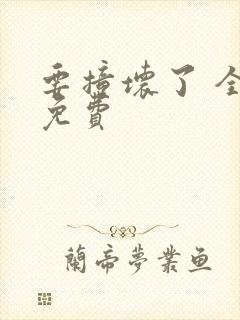 要撞壞了 全
免費
蘭帝夢業魚